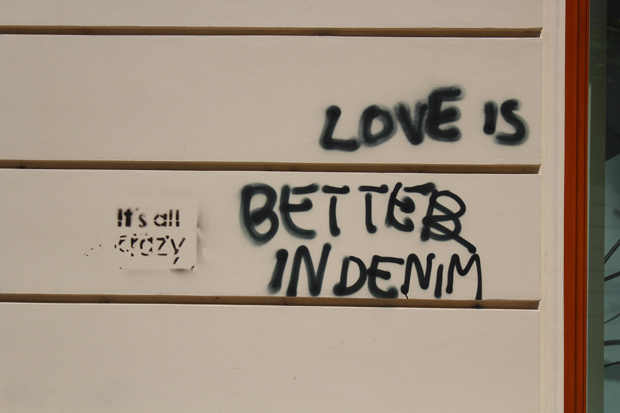 LOVE IS
BETTER
IN DENIM
It's all
crazy